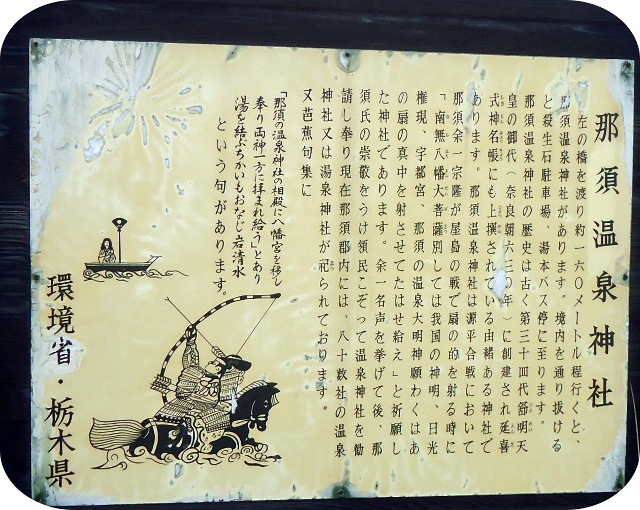 那須温泉神社
左の橋を渡り約一六〇メートル程行くと、
那須温泉神社があります。境内を通り抜ける
と殺生石駐車場、湯本バス停に至ります。
那須温泉神社の歴史は古く第三十四代舒明天
皇の御代（奈良朝六三〇年）に創建され延喜
式神名帳にも上撰されている由緒ある神社で
あります。那須温泉神社は源平合戦において
那須余一宗隆が屋島の戦で扇の的を射る時に
「南無八幡大菩薩別しては我国の神明、日光
権現、宇都宮、那須の温泉大明神願わくはあ
の扇の真中を射させてたはせ給え」と祈願し
た神社であります。余一名声を挙げて後、那
須氏の崇敬をうけ領民こぞって温泉神社を勧
請し奉り現在那須郡内には、八十数社の温泉
神社又は湯泉神社が祀られております。
又芭蕉句集に
「那須の温泉神社の相殿に八幡宮を移し
奉り両神一方に拝まれ給う」とあり
湯を結ぶちかいもおなじ岩清水
という句があります。
環境省・栃木県